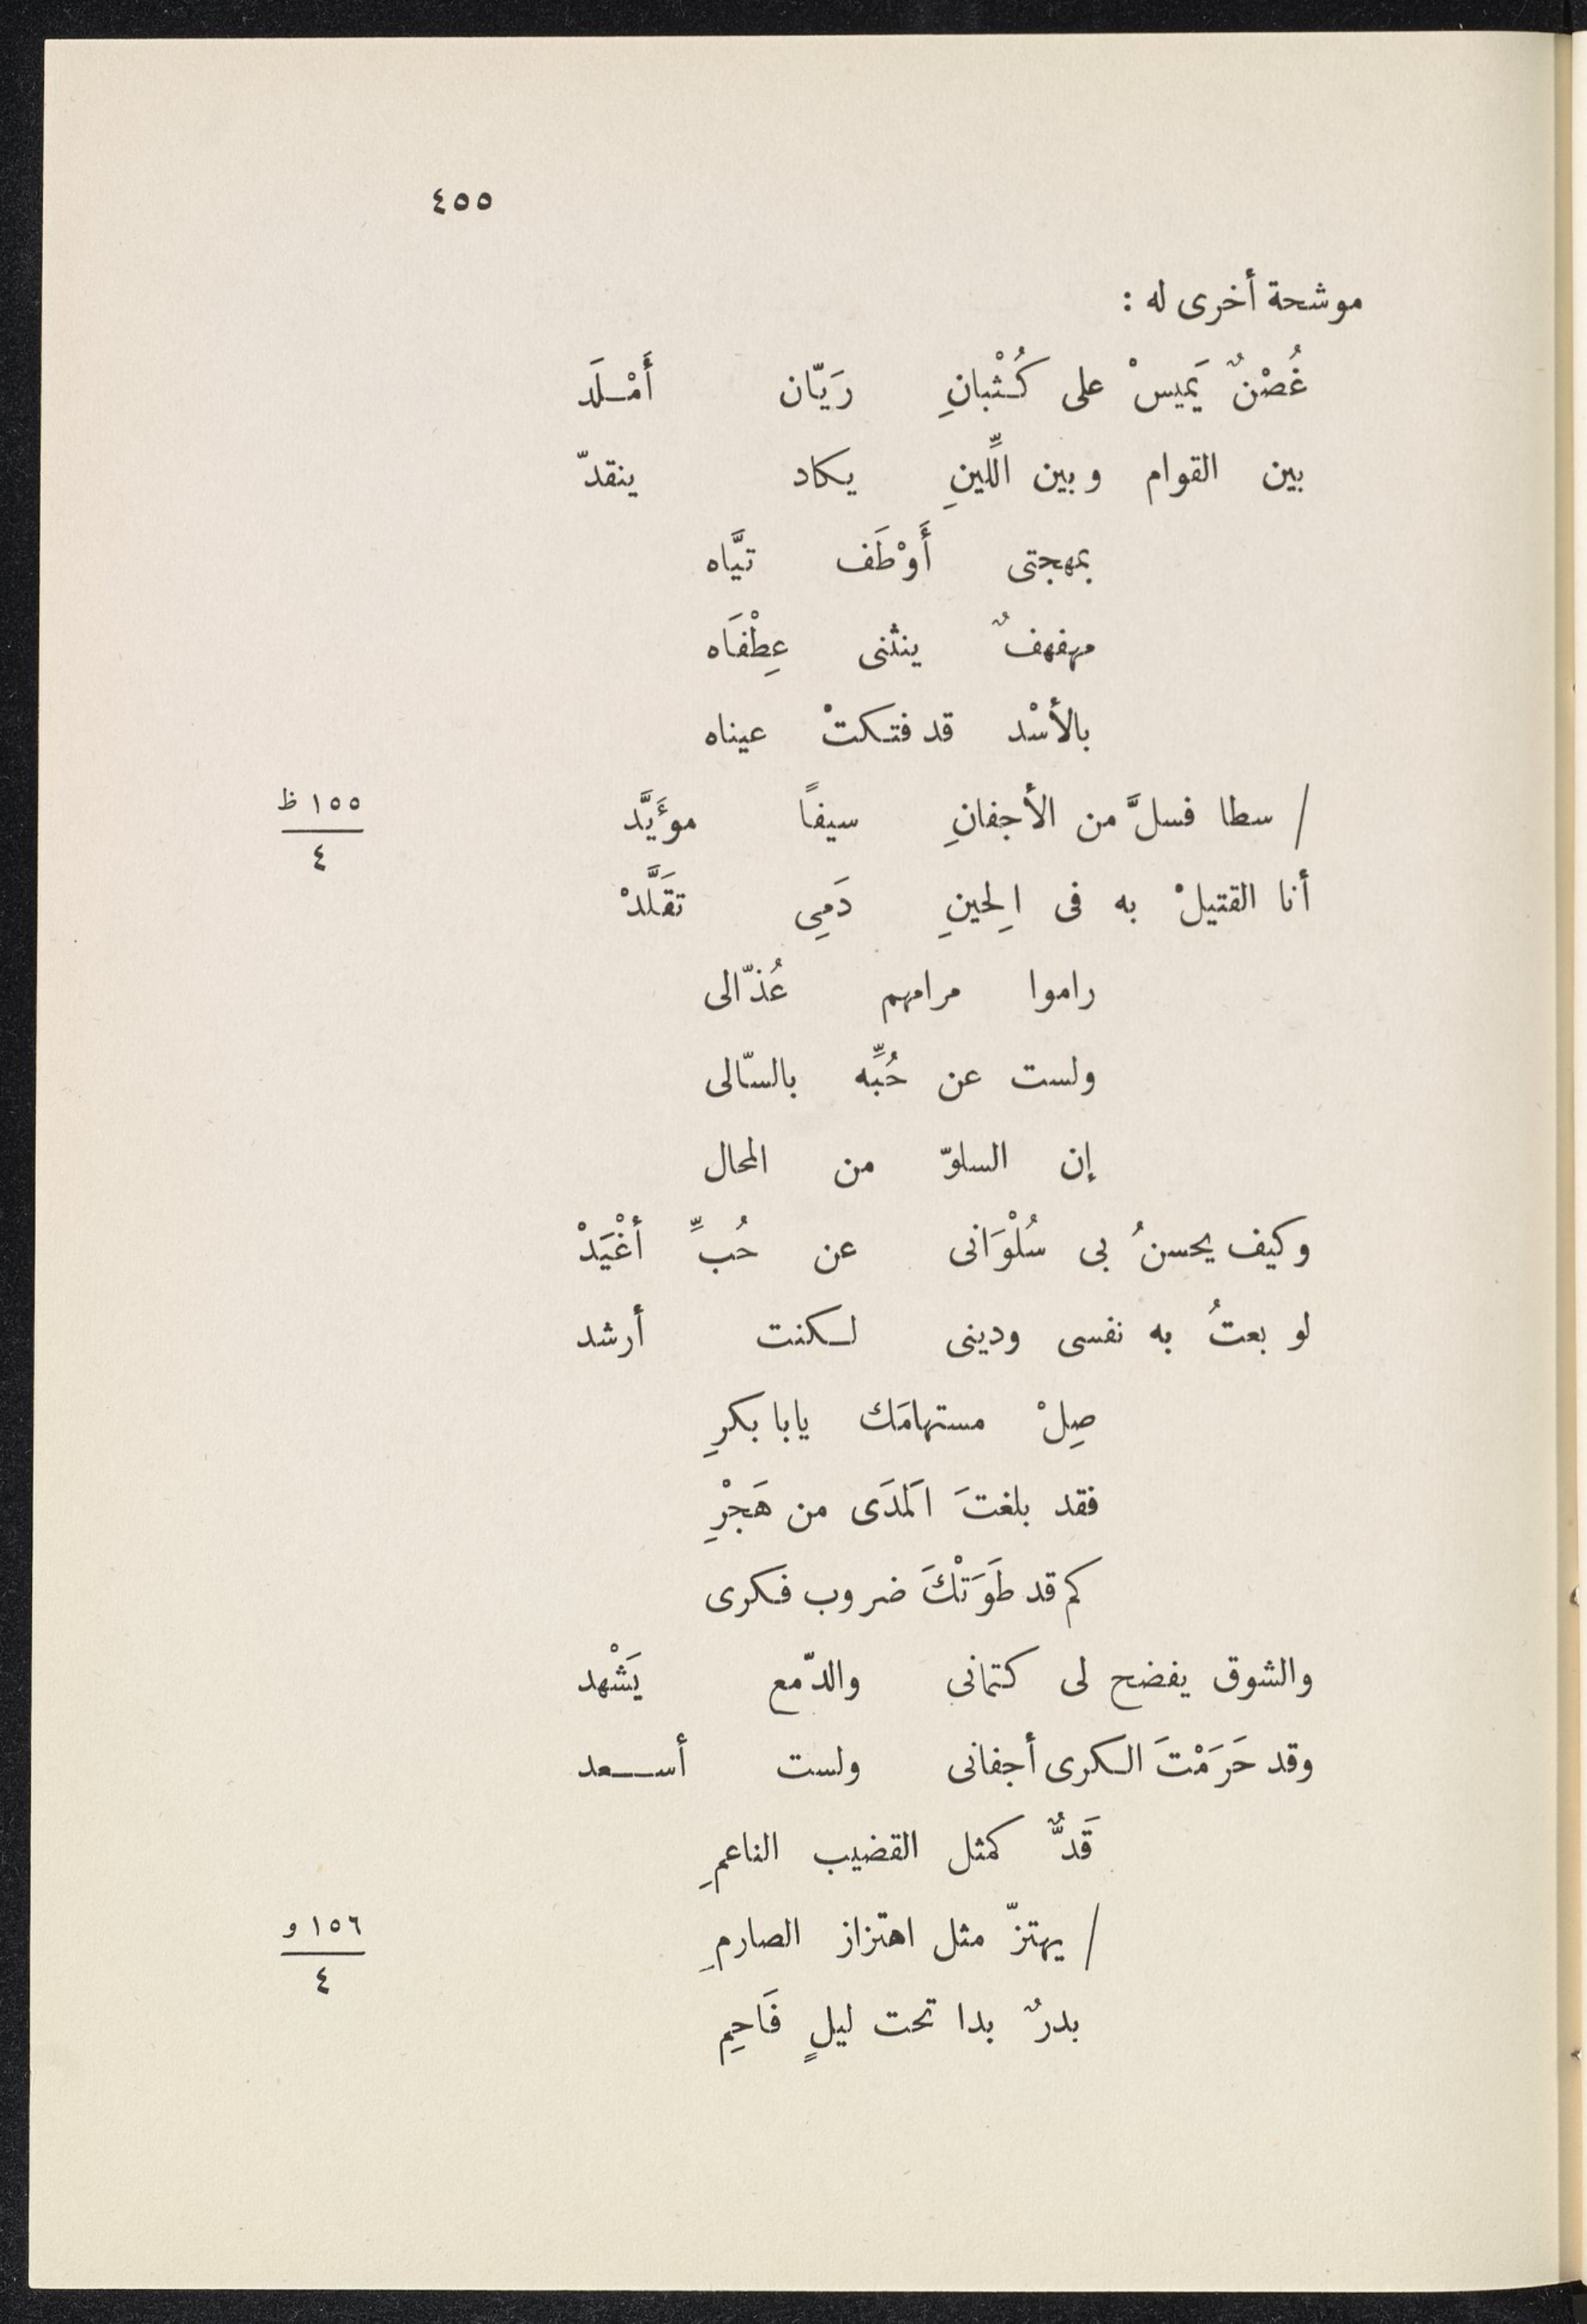 ٤٥٥
موشحة أخرى له :
غُصْنٌ يَميسْ على كُثْبانِ رَيّان أَمْلَد
بين القوام وبين اللِّينِ يكاد ينقدّ
بمهجتى أَوْطَف تيَّاه
مهفهفٌ ينثنى عِطْفَاه
بالأسْد قد فتكتْ عيناه
/ سطا فسلَّ من الأجفانِ سيفًا موءَيَّد
١٥٥ ظ
٤
أنا القتيلْ به فى الِحينِ دَمِى تقَلَّدْ
راموا مرامهم عُذّالى
ولست عن حُبِّه بالسّالى
إن السلوّ من المحال
وكيف يحسنُ بى سُلْوَانى عن حُبِّ أغْيَدْ
لو بعتُ به نفسى ودينى لكنت أرشد
صِلْ مستهامَك يابا بكرِ
فقد بلغتَ الَمدَى من هَجْرِ
كم قد طَوَتْكَ ضروب فكرى
والشوق يفضح لى كتمانى والدّمع يَشْهد
وقد حَرَمْتَ الكرى أجفانى ولست أسعد
قَدٌّ كمثل القضيب الناعمِ
/ يهتزّ مثل اهتزاز الصارمِ
١٥٦ و
٤
بدرٌ بدا تحت ليلٍ فَاحِم